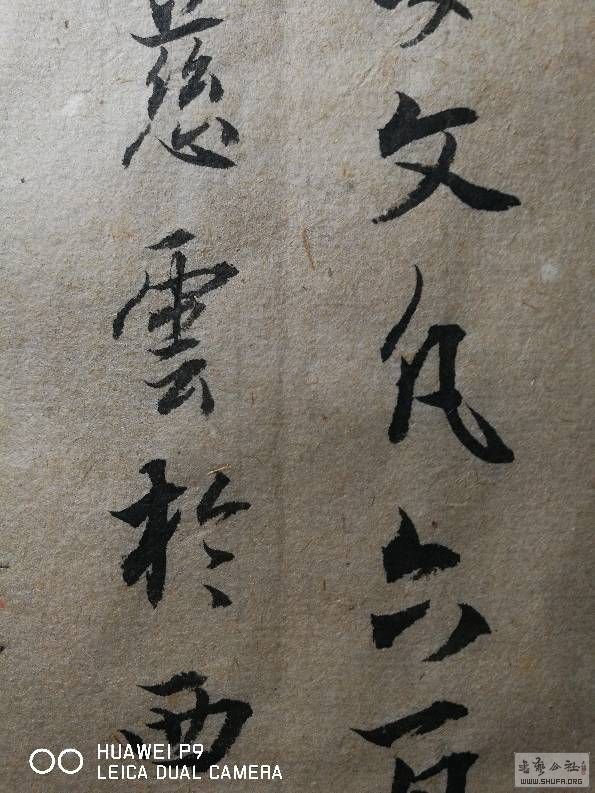 文凡六百
慈雲於西
HUAWEI P9
LEICA DUAL CAMERA
书艺公社
WWW.SHUFA.ORG